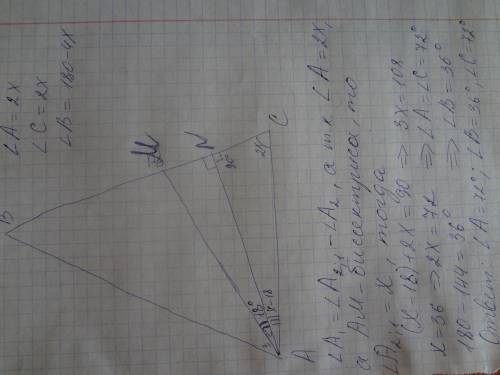 ∠A = 2x
∠C = 2x
∠B = 180-4x
B
M
N
90°
C
2x
18°
x-18
A
∠A = ∠A₂,₁ - ∠A₂, а т.к ∠A = 2x,
а AM - биссектриса, то
∠A₂,₁ = x, тогда
(x-18)+2x = 90 ⇒ 3x = 108
x = 36 ⇒ 2x = 72 ⇒ ∠A = ∠C = 72°
180 - 144 = 36° ⇒ ∠B = 36°
Ответ: ∠A = 72°; ∠B = 36°; ∠C = 72°